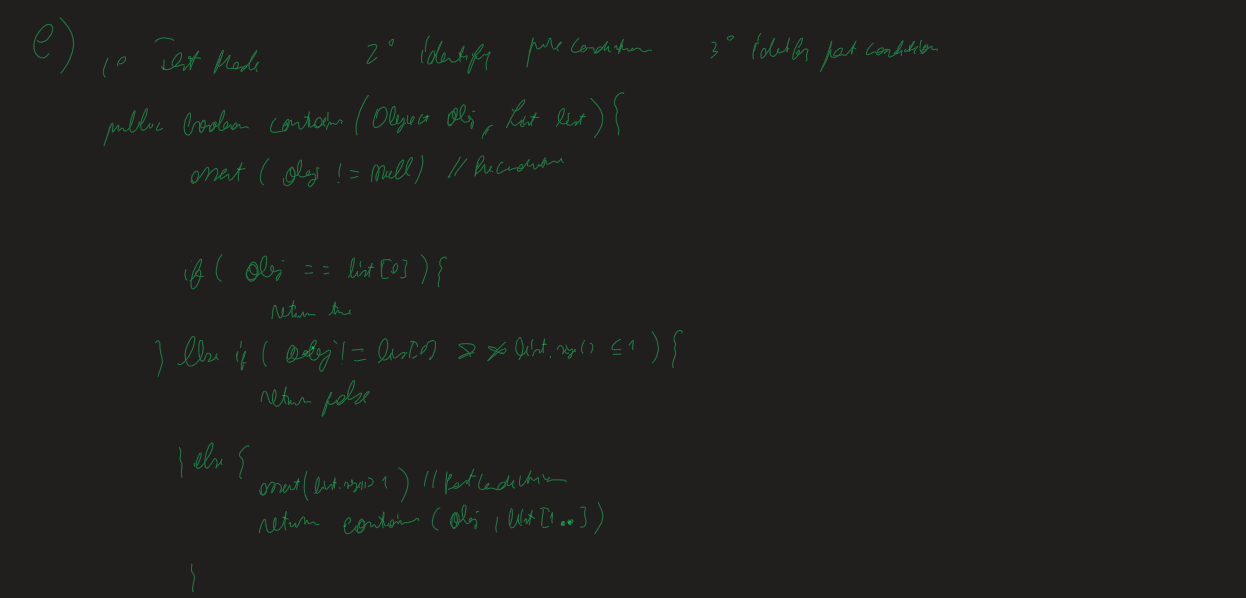 e) 1° Test Mode 2° identify pre condition 3° identify post condition
public boolean contains (Object Obj, List list) {
assert ( Obj != null) // Precondition
if ( Obj == list[0] ) {
return true
} else if ( Obj != list[0] && list.size() ≤ 1 ) {
return false
} else {
assert( list.size() > 1 ) // Post condition
return contains ( Obj , list [1..] )
}